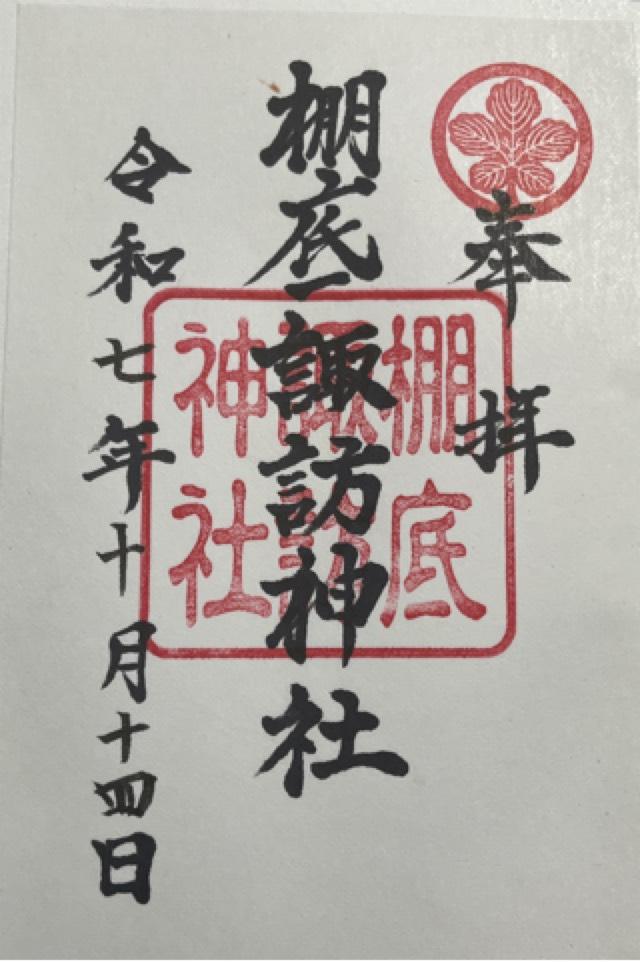 奉拝
棚底諏訪神社
令和七年十月十四日
棚底
諏訪
神社